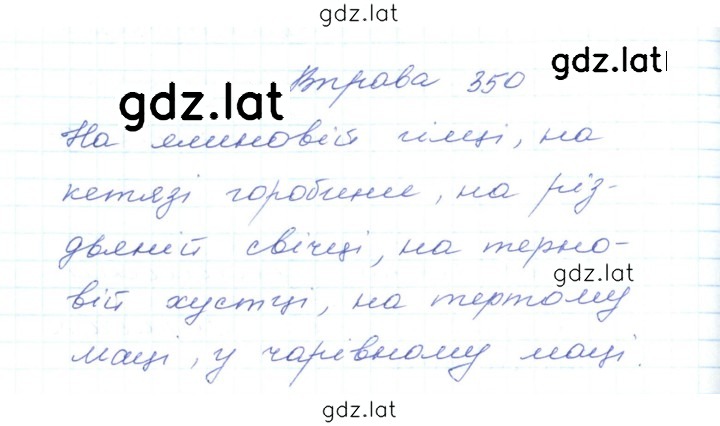 gdz.lat
gdz.lat
Вправа 350
gdz.lat
На ялиновій гілці, на
кетязі горобини, на різ-
дьяній свічці, на терно-
gdz.lat
вій хустці, на тертому
маці, у чарівному маці.
gdz.lat